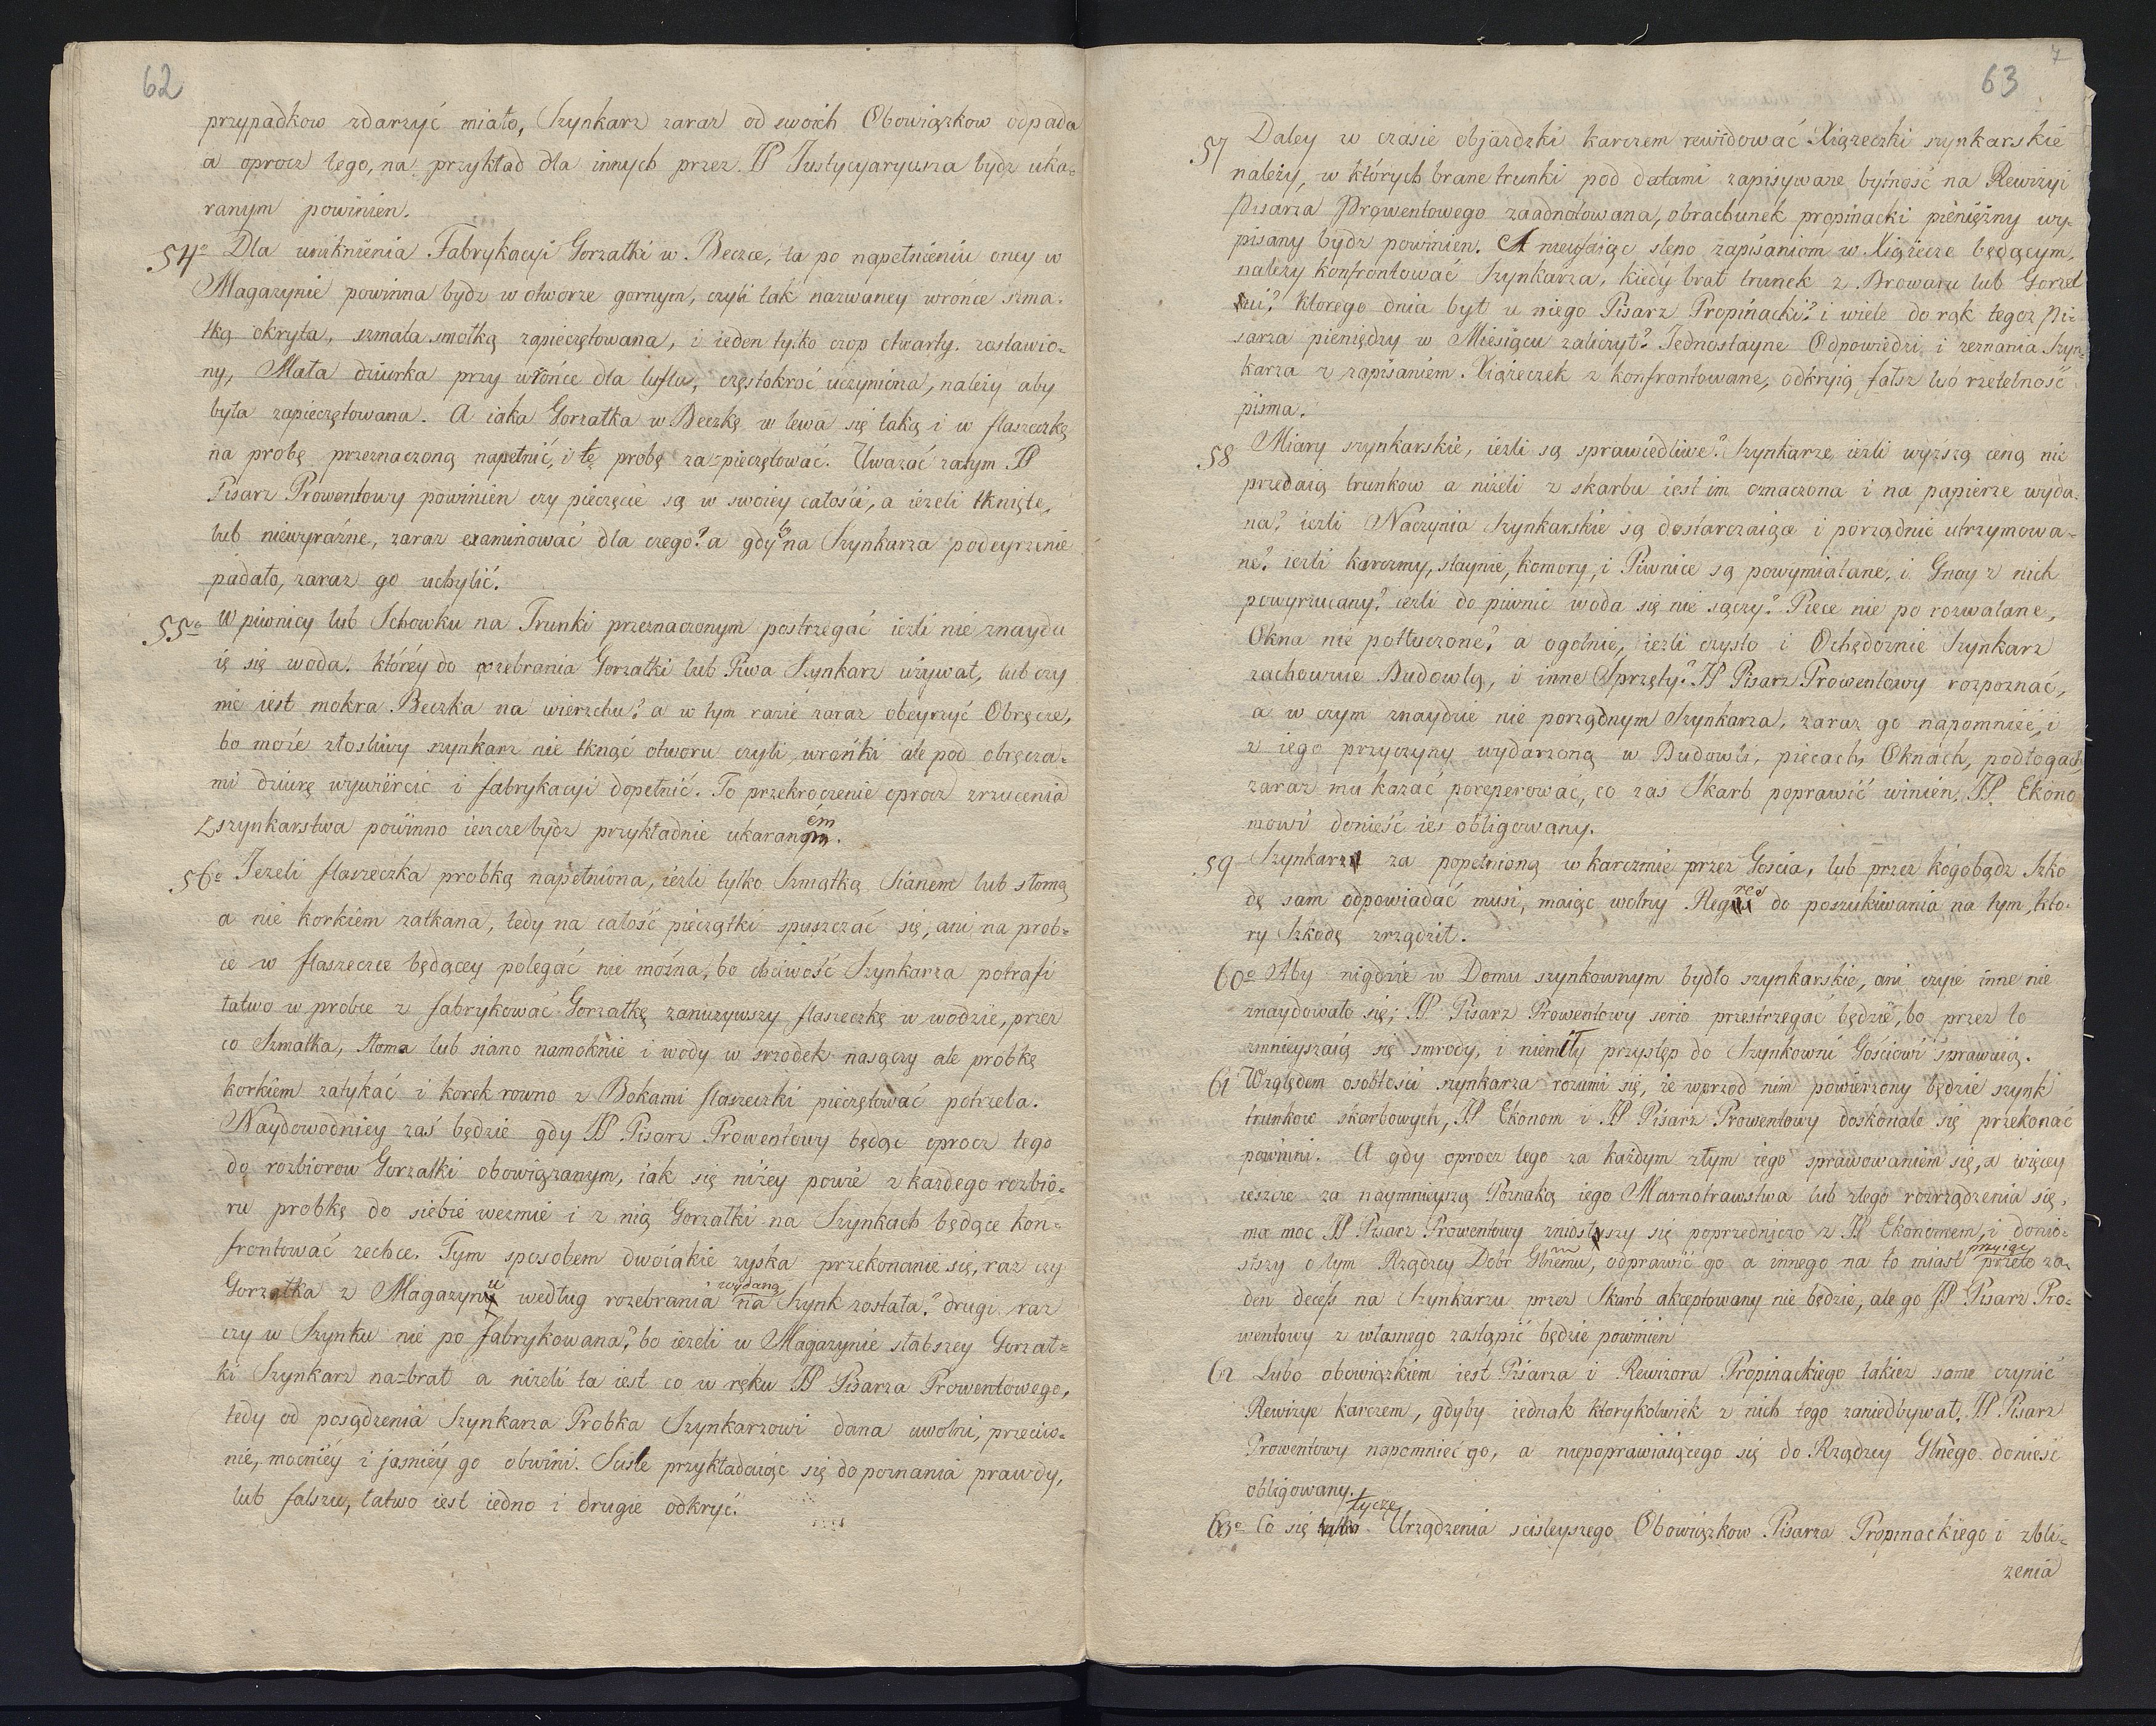 62
przypadkow zdarzyć miało, Szynkarz zaraz od swoich Obowiązkow odpada
a oprocz tego, na przykład dla innych przez JP Justycyaryusza bydz uka=
ranym powinien.
54o Dla uniknienia Fabrykacyi Gorzałki w Beczce, ta po napełnieniu oney w
Magazynie powinna bydz w otworze gornym, czyli tak nazwaney wrońce szma-
tką okryta, szmata smołką zapieczętowana, i ieden tylko czop otwarty zostawio=
ny, Mała dziurka przy wrońce dla luftu, częstokroć uczyniona, należy aby
była zapieczętowana. A iaka Gorzałka w Beczkę w lewa się taką i w flaszeczkę
na probę przeznaczoną napełnić, i tę probę za=pieczętować. Uwazać zatym JP
Pisarz Prowentowy powinien czy pieczęcie są w swoiey całości, a ieżeli tknięte,
lub niewyraźne, zaraz examinować dla czego? a gdy by na Szynkarza podeyrzenie
padało, zaraz go uchylić.
55o W piwnicy lub Schowku na Trunki przeznaczonym postrzegać iezli nie znaydu
ię się woda, któréy do rozebrania Gorzałki lub Piwa Szynkarz używał, lub czy
nie iest mokra Beczka na wierzchu? a w tym razie zaraz obeyrzyć Obręcze,
bo może złosliwy szynkarz nie tknąć otworu czyli wrońki ale pod obręcza-
mi dziurę wywiercić i fabrykacyi dopełnić. To przekroczenie oprocz zrzucenia
z szynkarstwa powinno ieszcze bydz przykładnie ukaraném.
56o Jeżeli flaszeczka probką napełniona, ieżli tylko Szmatką Sianem lub słomą
a nie korkiem zatkana, tedy na całość pieczątki spuszczać się, ani na prob=
ie w flaszeczce będącey polegać nie można, bo chciwość Szynkarza potrafi
łatwo w probce z fabrykować Gorzałkę zanużywszy flaszeczkę w wodzie, przez
co Szmatka, słoma lub siano namoknie i wody w srzodek nasączy ale probkę
korkiem zatykać i korek rowno z Bokami flaszeczki pieczętować potrzeba.
Naydowodniey zaś będzie gdy JP Pisarz Prowentowy będąc oprocz tego
do rozbiorow Gorzałki obowiązanym, iak się niżey powie z każdego rozbio=
ru probkę do siebie weźmie i z nią Gorzałki na Szynkach będące kon=
frontować zechce. Tym sposobem dwoiakie zyska przekonanie się, raz czy
Gorzałka z Magazynu według rozebrania wydaną na Szynk została? drugi raz
czy w Szynku nie po fabrykowana? bo ieżeli w Magazynie słabszey Gorzał=
ki Szynkarz nazbrał a niżeli ta iest co w ręku JP Pisarza Prowentowego,
tedy od posądzenia Szynkarza Probka Szynkarzowi dana uwolni, przeciw=
nie, mocniéy i jasniéy go obwini. Scisle przykładaiąc się do poznania prawdy,
lub falszu, łatwo iest iedno i drugie odkryć.
7
63
57 Daley w czasie objazdzki karczem rewidować Xiążeczki szynkarskie
należy, w których brane trunki pod datami zapisywane bytność na Rewizyi
Pisarza Prowentowego zaadnotowana, obrachunek propinacki pieniężny wy-
pisany bydz powinien. A nieufaiąc slepo zapisaniom w Xiążecze będącym,
należy konfrontować Szynkarza, kiedy brał trunek z Browaru lub Gorzel
ni? ktorego dnia był u niego Pisarz Propinacki? i wiele do rąk tegoż Pi-
sarza pieniędzy w Miesiącu zaliczył? Jednostayne Odpowiedzi i zeznania Szyn=
karza z zapisaniem Xiążeczek z konfrontowane, odkryią fałsz lub rzetelność
pisma.
58 Miary szynkarskie, iezli są sprawiedliwe? Szynkarze iezli wyższą ceną nie
przedaią trunkow a niżeli z skarbu iest im oznaczona i na papierze wyda-
na? iezli Naczynia Szynkarskie są dostarczaiące i porządnie utrzymowa=
ne? iezli karczmy, staynie, komory, i Piwnice są powymiatane, i Gnoy z nich
powyrzucany? iezli do piwnic woda się nie sączy? Piece nie po rozwalane,
Okna nie potłuczone? a ogolnie, iezli czysto i Ochędożnie Szynkarz
zachowuie Budowlę, i inne Sprzęty? JP Pisarz Prowentowy rozpoznać,
a w czym znaydzie nie porządnym Szynkarza, zaraz go napomnieć, i
z iego przyczyny wydarzoną w Budowli, piecach, Oknach, podłogach,
zaraz mu kazać poreperować, co zaś Skarb poprawić winien, JP. Ekono
mowi donieść ies obligowany.
59 Szynkarz za popełnioną w karczmie przez Gościa, lub przez kogobądz Szko
dę sam odpowiadać musi, maiąc wolny Regres do poszukiwania na tym, kto-
ry Szkodę zrządził.
60o Aby nigdzie w Domu szynkownym bydło szynkarskie, ani czyie inne nie
znaydowało się; JP Pisarz Prowentowy serio przestrzegać będzie, bo przez to
zmnieyszaią się smrody, i niemiły przystęp do Szynkowni Gościowi sprawuią.
61 Względem osobłości szynkarza rozumi się, że wprzod nim powierzony będzie szynk
trunkow skarbowych, JP Ekonom i JP Pisarz Prowentowy doskonale się przekonać
powinni. A gdy oprocz tego za każdym złym iego sprawowaniem się, a więcey
ieszcze za naymnieyszą Poznaką iego Marnotrawstwa lub złego rozrządzenia się,
ma moc JP Pisarz Prowentowy zniosłszy się poprzedniczo z JP Ekonomem, i donio-
słszy o tym Rządzcy Dóbr Glnemu, odprawić go a innego na to miast przyiąć przeto ża-
den decess na Szynkarzu przez Skarb akceptowany nie będzie, ale go JP Pisarz Pro=
wentowy z własnego zastąpić będzie powinien
62 Lubo obowiązkiem iest Pisarza i Rewizora Propinackiego takież same czynić
Rewizye karczem, gdyby iednak ktorykolwiek z nich tego zaniedbywał, JP Pisarz
Prowentowy napomnieć go, a niepoprawiaiącego się do Rządzcy Glnego donieść
obligowany.
63o Co się tycze Urządzenia scisleyszego Obowiązkow Pisarza Propinackiego i zbli=
zenia